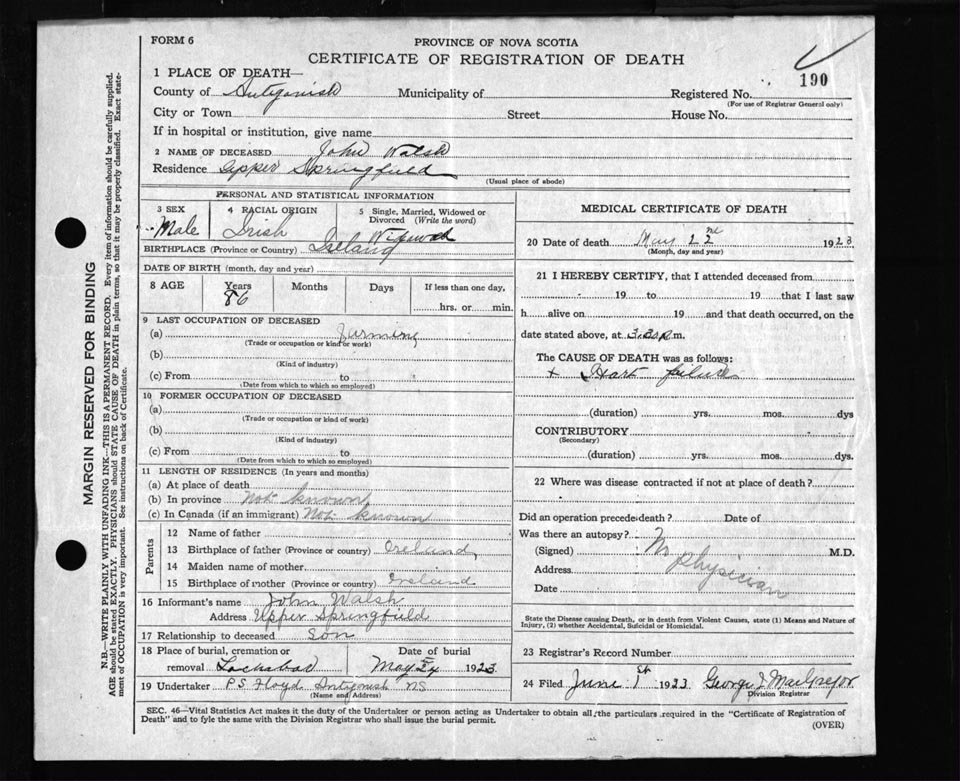 FORM 6
PROVINCE OF NOVA SCOTIA
CERTIFICATE OF REGISTRATION OF DEATH
190
1 PLACE OF DEATH—
County of Antigonish Municipality of Registered No.
(For use of Registrar General only)
City or Town Street House No.
If in hospital or institution, give name
2 NAME OF DECEASED John Walsh
Residence Upper Springfield
(Usual place of abode)
PERSONAL AND STATISTICAL INFORMATION
3 SEX 4 RACIAL ORIGIN 5 Single, Married, Widowed or Divorced (Write the word)
Male Irish
BIRTHPLACE (Province or Country) Ireland
DATE OF BIRTH (month, day and year)
8 AGE Years Months Days If less than one day,
86 hrs. or min.
9 LAST OCCUPATION OF DECEASED
(a) Farming
(Trade or occupation or kind of work)
(b)
(Kind of industry)
(c) From to
(Date from which to which so employed)
10 FORMER OCCUPATION OF DECEASED
(a)
(Trade or occupation or kind of work)
(b)
(Kind of industry)
(c) From to
(Date from which to which so employed)
11 LENGTH OF RESIDENCE (In years and months)
(a) At place of death
(b) In province Not known
(c) In Canada (if an immigrant) Not known
Parents
12 Name of father
13 Birthplace of father (Province or country) Ireland
14 Maiden name of mother
15 Birthplace of mother (Province or country) Ireland
16 Informant's name John Walsh
Address Upper Springfield
17 Relationship to deceased Son
18 Place of burial, cremation or Date of burial
removal Lochabad May 24 1923
19 Undertaker P S Floyd Antigonish NS
(Name and Address)
MEDICAL CERTIFICATE OF DEATH
20 Date of death May 22nd 1923
(Month, day and year)
21 I HEREBY CERTIFY, that I attended deceased from
19 to 19 that I last saw
h alive on 19 and that death occurred, on the
date stated above, at 3.30 p.m.
The CAUSE OF DEATH was as follows:
+ Hart failure
(duration) yrs. mos. dys
CONTRIBUTORY
(Secondary)
(duration) yrs. mos. dys.
22 Where was disease contracted if not at place of death?
Did an operation precede death? Date of
Was there an autopsy?
(Signed) No physician M.D.
Address
Date
State the Disease causing Death, or in death from Violent Causes, state (1) Means and Nature of Injury, (2) whether Accidental, Suicidal or Homicidal.
23 Registrar's Record Number
24 Filed June 1st 1923 George MacGregor
Division Registrar
SEC. 46—Vital Statistics Act makes it the duty of the Undertaker or person acting as Undertaker to obtain all the particulars required in the "Certificate of Registration of
Death" and to fyle the same with the Division Registrar who shall issue the burial permit.
(OVER)
MARGIN RESERVED FOR BINDING
N.B.—WRITE PLAINLY WITH UNFADING INK—THIS IS A PERMANENT RECORD. Every item of information should be carefully supplied.
AGE should be stated EXACTLY. PHYSICIANS should STATE CAUSE OF DEATH in plain terms, so that it may be properly classified. Exact state-
ment of OCCUPATION is very important. See instructions on back of Certificate.